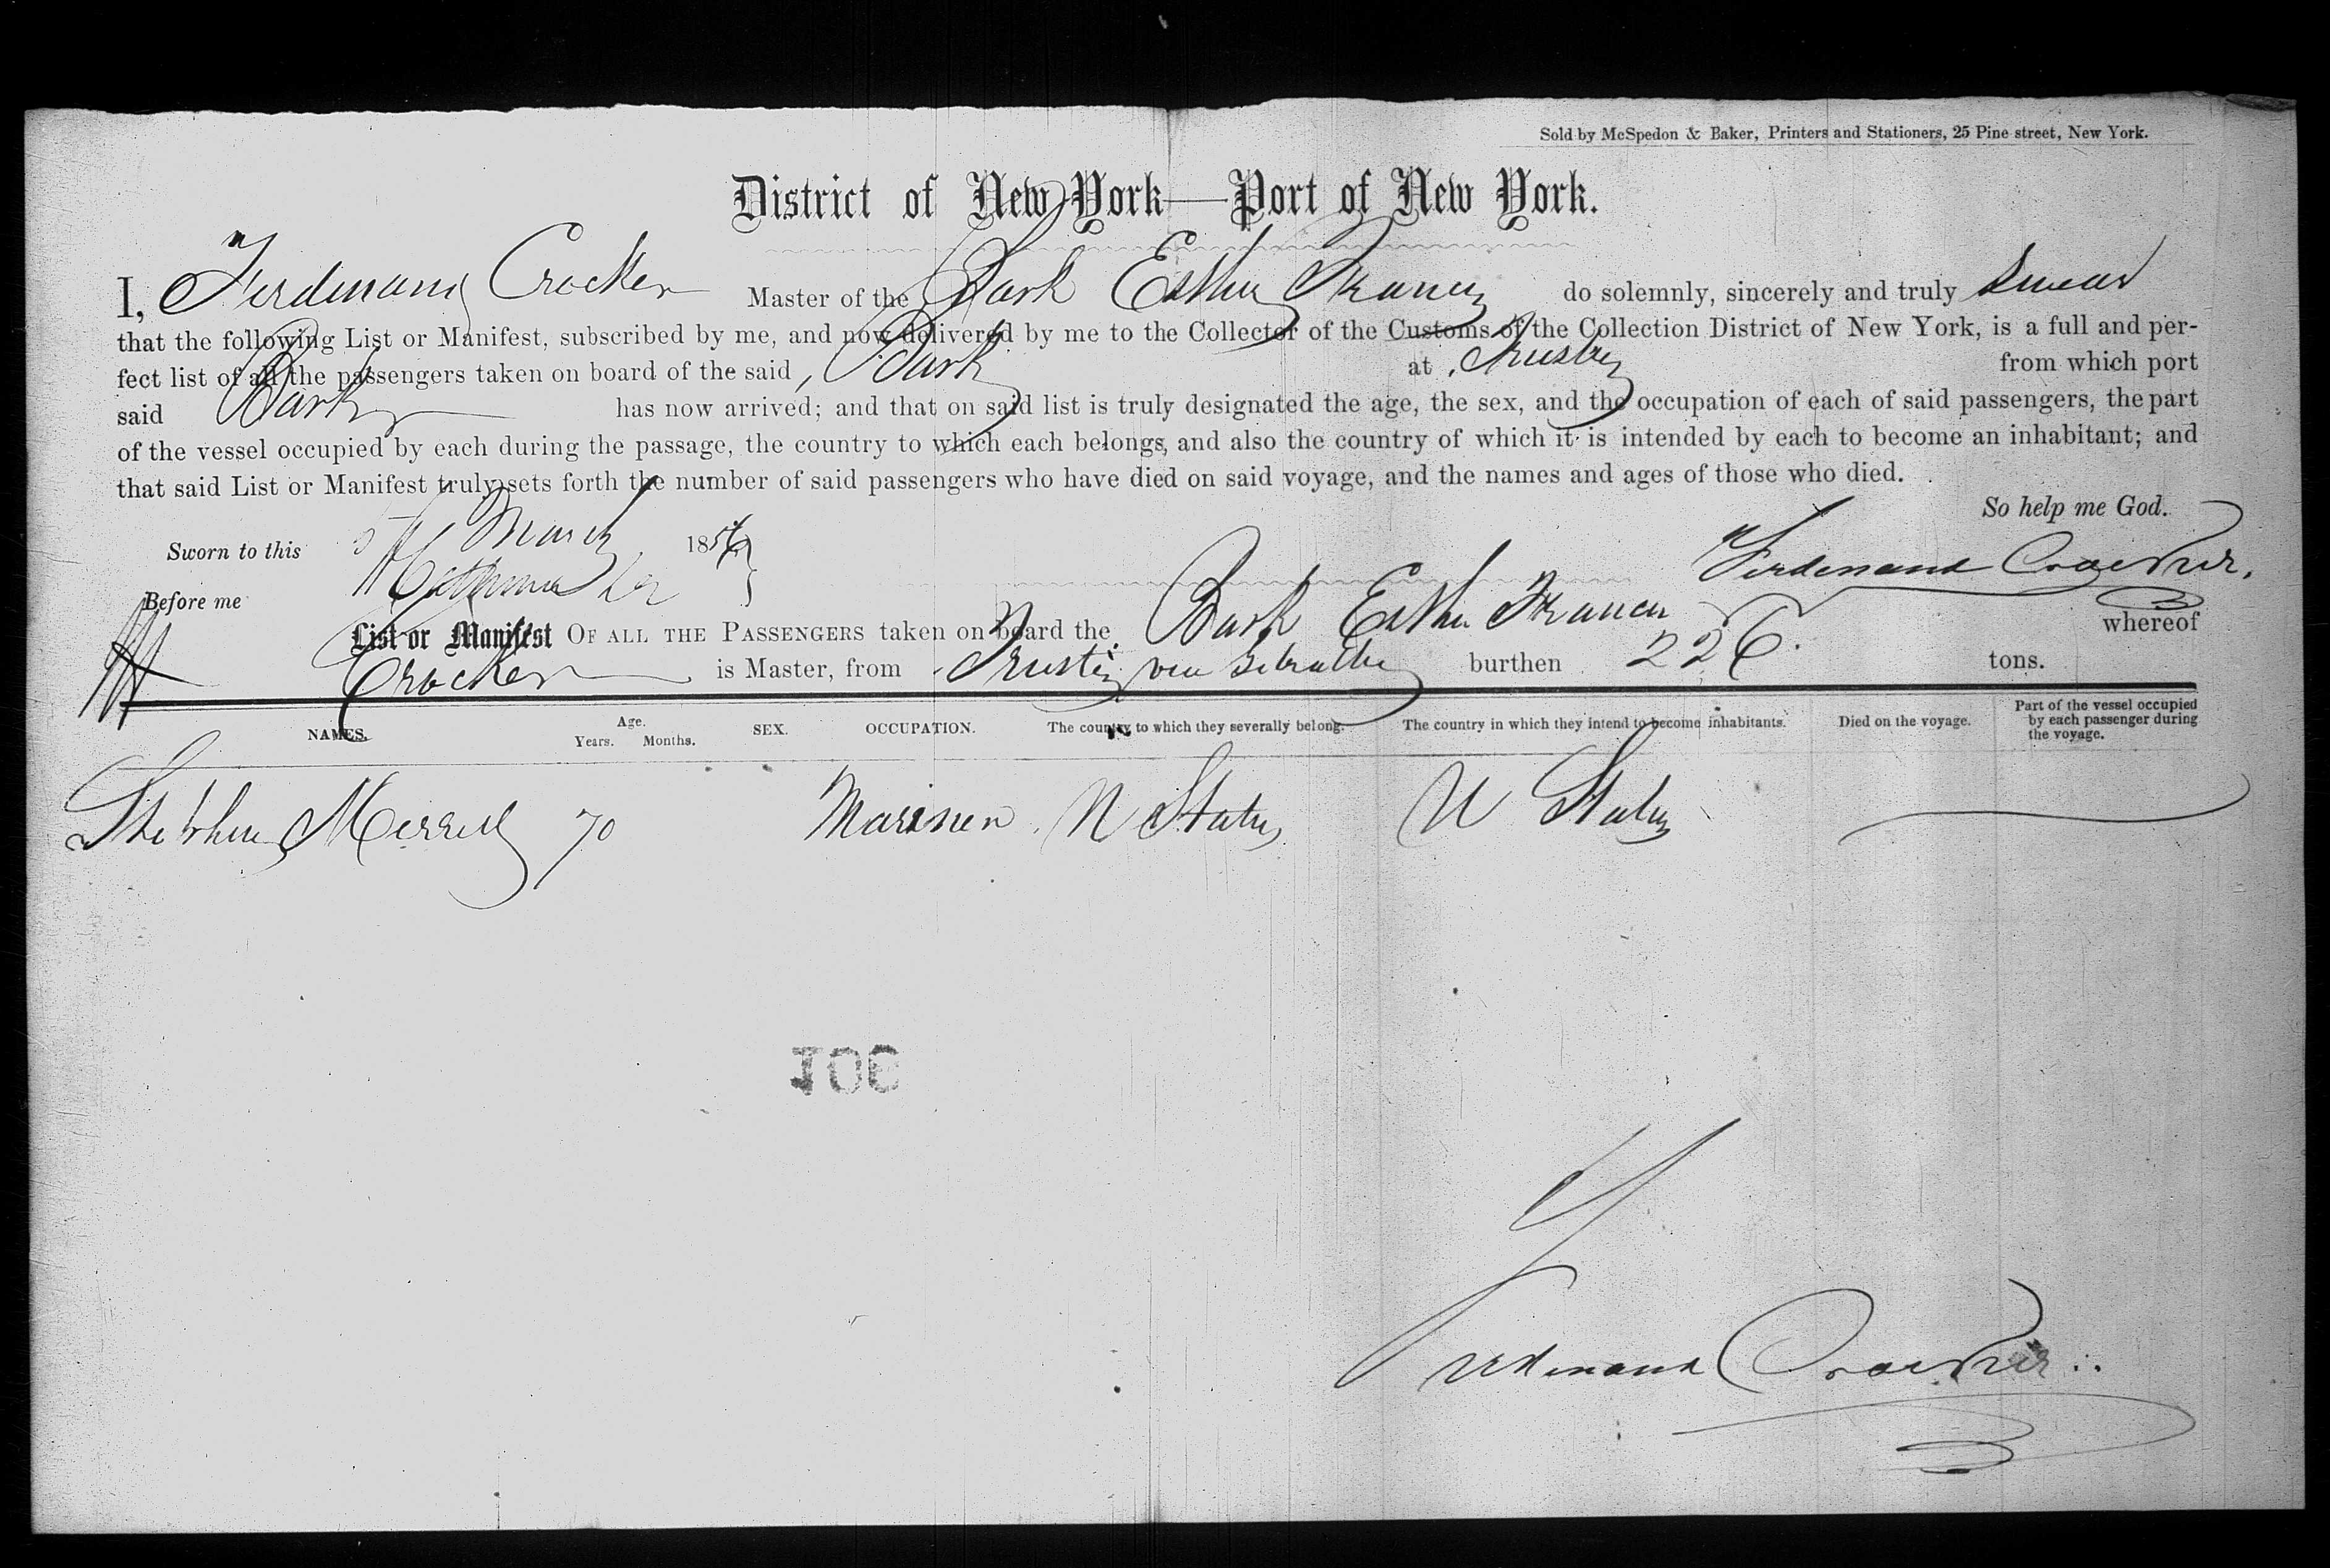 Sold by McSpedon & Baker, Printers and Stationers, 25 Pine street, New York.
District of New York—Port of New York.
I, Ferdinand Crocker Master of the Bark Esther Frances do solemnly, sincerely and truly swear
that the following List or Manifest, subscribed by me, and now delivered by me to the Collector of the Customs of the Collection District of New York, is a full and per-
fect list of all the passengers taken on board of the said Bark at from which port
said Bark has now arrived; and that on said list is truly designated the age, the sex, and the occupation of each of said passengers, the part
of the vessel occupied by each during the passage, the country to which each belongs, and also the country of which it is intended by each to become an inhabitant; and
that said List or Manifest truly sets forth the number of said passengers who have died on said voyage, and the names and ages of those who died.
So help me God.
Sworn to this 5th March 1856
Ferdinand Crocker.
Before me
List or Manifest OF ALL THE PASSENGERS taken on board the Bark Esther Frances whereof
Crocker is Master, from burthen 226 tons.
NAMES. Age. Years. Months. SEX. OCCUPATION. The country to which they severally belong. The country in which they intend to become inhabitants. Died on the voyage. Part of the vessel occupied by each passenger during the voyage.
Stephen Merrill 70 Mariner U States U States
Ferdinand Crocker